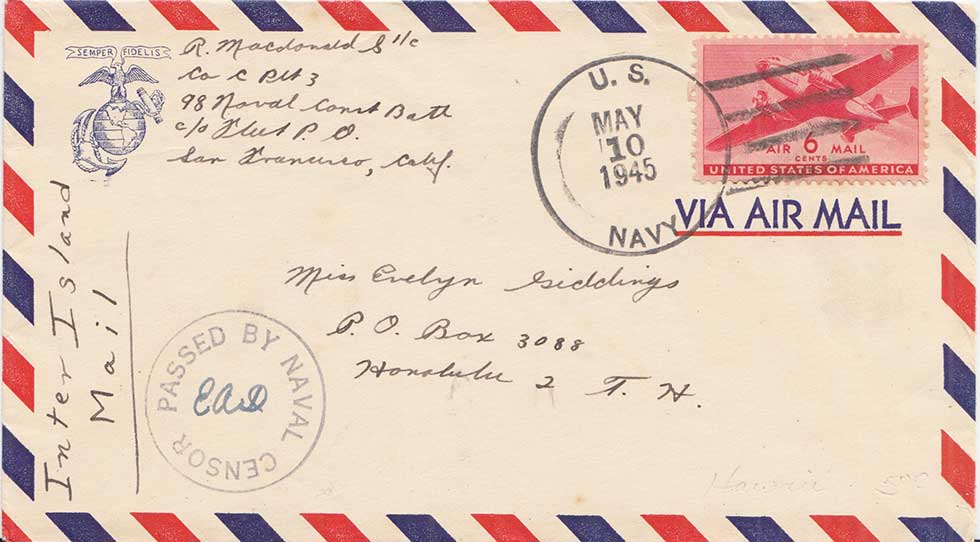 SEMPER FIDELIS
R. Macdonald S 1/c
Co C Plt 3
98 Naval Const Batt
c/o Fleet P. O.
San Francisco, Calif.
U. S.
MAY
10
1945
NAVY
AIR 6 MAIL
CENTS
UNITED STATES OF AMERICA
VIA AIR MAIL
Inter Island
Mail
Miss Evelyn Giddings
P. O. Box 3088
Honolulu 2 T. H.
PASSED BY NAVAL CENSOR
EAD
Hawaii